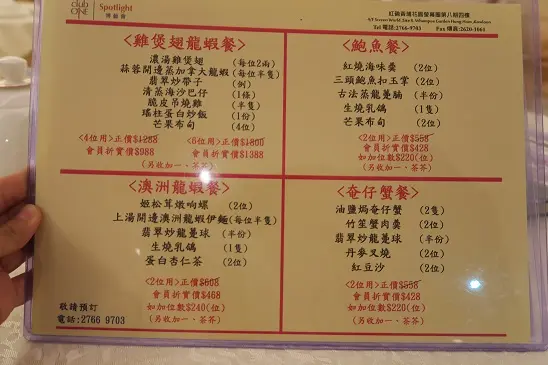 club
ONE
Spotlight
博藝會
紅磡黃埔花園聚寶坊第八期四樓
Tel 電話:2766-9703 Fax 傳真:2620-1061
<雞煲翅龍蝦餐>
濃湯雞煲翅 (每位2兩)
蒜蓉開邊蒸加拿大龍蝦(每位半隻)
翡翠炒帶子 (例)
清蒸海沙巴仔 (1條)
脆皮吊燒雞 (半隻)
瑤柱蛋白炒飯 (1份)
芒果布甸 (4位)
<4位用>正價$1288 <6位用>正價$1800
會員折實價$988 會員折實價$1388
(另收加一‧茶芥)
<鮑魚餐>
紅燒海味羹 (2位)
三頭鮑魚扣玉掌 (2位)
古法蒸龍躉腩 (半份)
生燒乳鴿 (1隻)
芒果布甸 (2位)
<2位用>正價$558
會員折實價$428
如加位數$220(位)
(另收加一‧茶芥)
<澳洲龍蝦餐>
姬松茸燉响螺 (2位)
上湯開邊澳洲龍蝦伊麵(每位半隻)
翡翠炒龍躉球 (半份)
生燒乳鴿 (1隻)
蛋白杏仁茶 (2位)
<2位用>正價$608
會員折實價$468
如加位數$240(位)
(另收加一‧茶芥)
<奄仔蟹餐>
油鹽焗奄仔蟹 (2隻)
竹笙蟹肉羹 (2位)
翡翠炒龍躉球 (半份)
丹麥叉燒 (2位)
紅豆沙 (2位)
<2位用>正價$558
會員折實價$428
如加位數$220(位)
(另收加一‧茶芥)
敬請預訂
電話:2766 9703